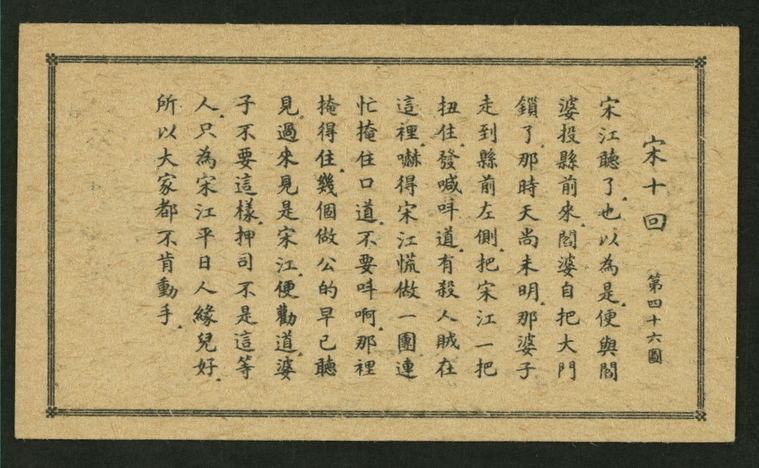 宋十回
第四十六圖
宋江聽了.也以為是.便與閻
婆投縣前來.閻婆自把大門
鎖了.那時天尚未明.那婆子
走到縣前左側.把宋江一把
扭住.發喊呌道.有殺人賊在
這裡.嚇得宋江慌做一團連
忙掩住口道.不要呌啊.那裡
掩得住.幾個做公的早已聽
見.過來見是宋江.便勸道.婆
子不要這樣.押司不是這等
人.只為宋江平日人緣兒好.
所以大家都不肯動手.